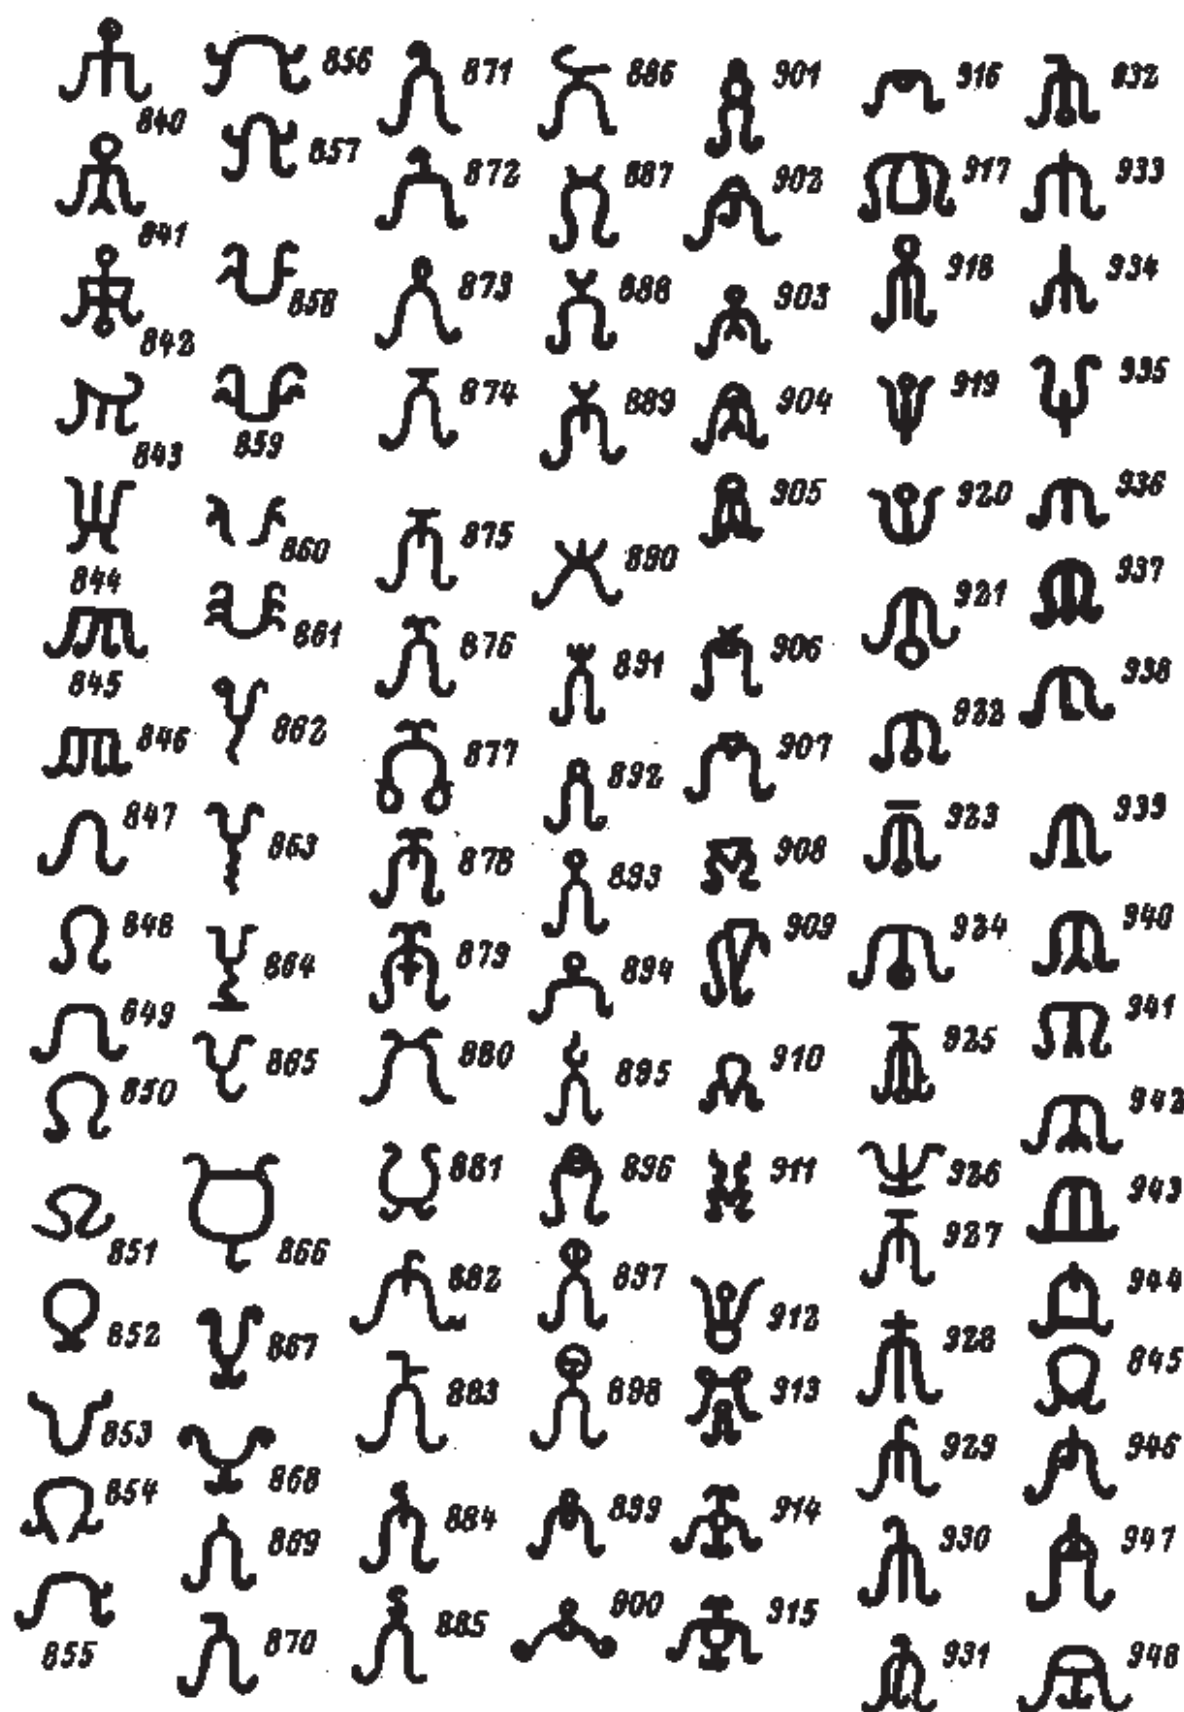 840
841
842
843
844
845
846
847
848
849
850
851
852
853
854
855
856
857
858
859
860
861
862
863
864
865
866
867
868
869
870
871
872
873
874
875
876
877
878
879
880
881
882
883
884
885
886
887
888
889
890
891
892
893
894
895
896
897
898
899
900
901
902
903
904
905
906
907
908
909
910
911
912
913
914
915
916
917
918
919
920
921
922
923
924
925
926
927
928
929
930
931
932
933
934
935
936
937
938
939
940
941
942
943
944
845
946
947
948